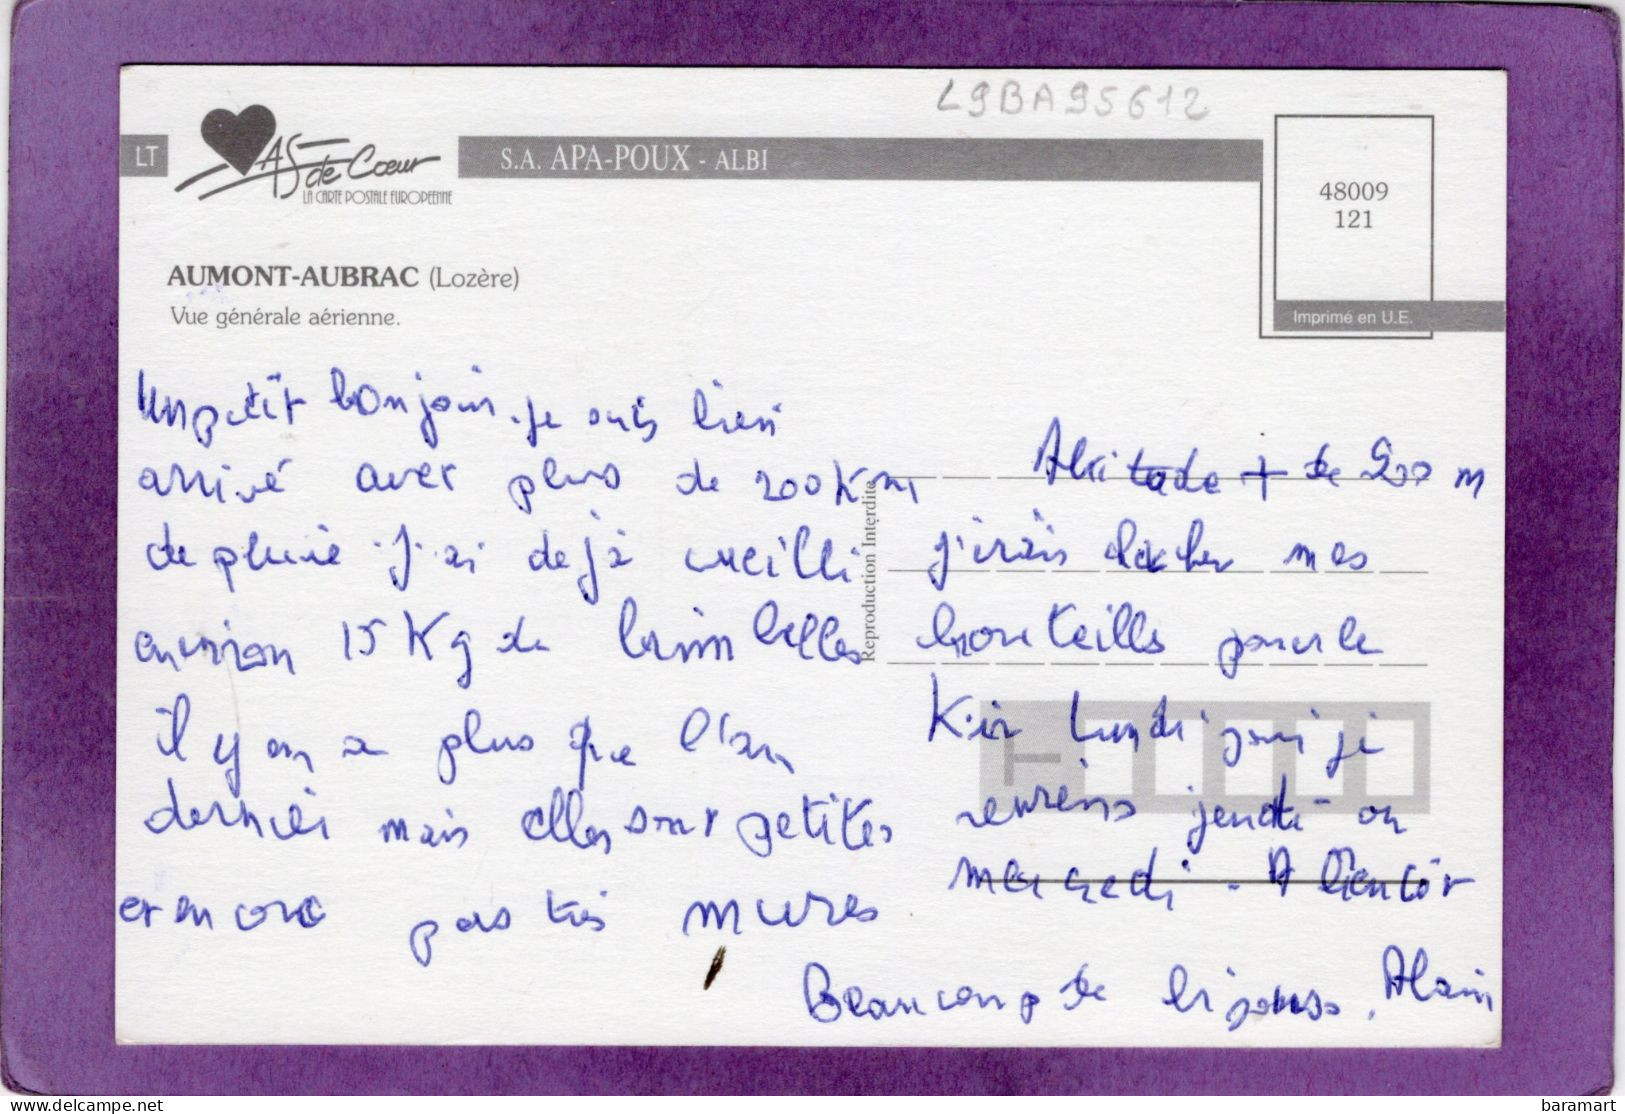 L9BA95612
LT
AS de Cœur
LA CARTE POSTALE EUROPEENNE
S.A. APA-POUX - ALBI
48009
121
Imprimé en U.E.
AUMONT-AUBRAC (Lozère)
Vue générale aérienne.
Reproduction Interdite
Un petit bonjour. je suis bien
arrivé avec plus de 200 Km
de pluie. j'ai dejà cueilli
environ 15 Kg de brimbelles
il y en a plus que l'an
dernier mais elles sont petites
et encore pas très mures
Altitade + de 900 m
j'irais chercher mes
bouteilles pour le
Kir Lundi, je
reviens jeudi ou
mercredi - A bientôt
Beaucoup de bisous. Alain
delcampe.net
baramart